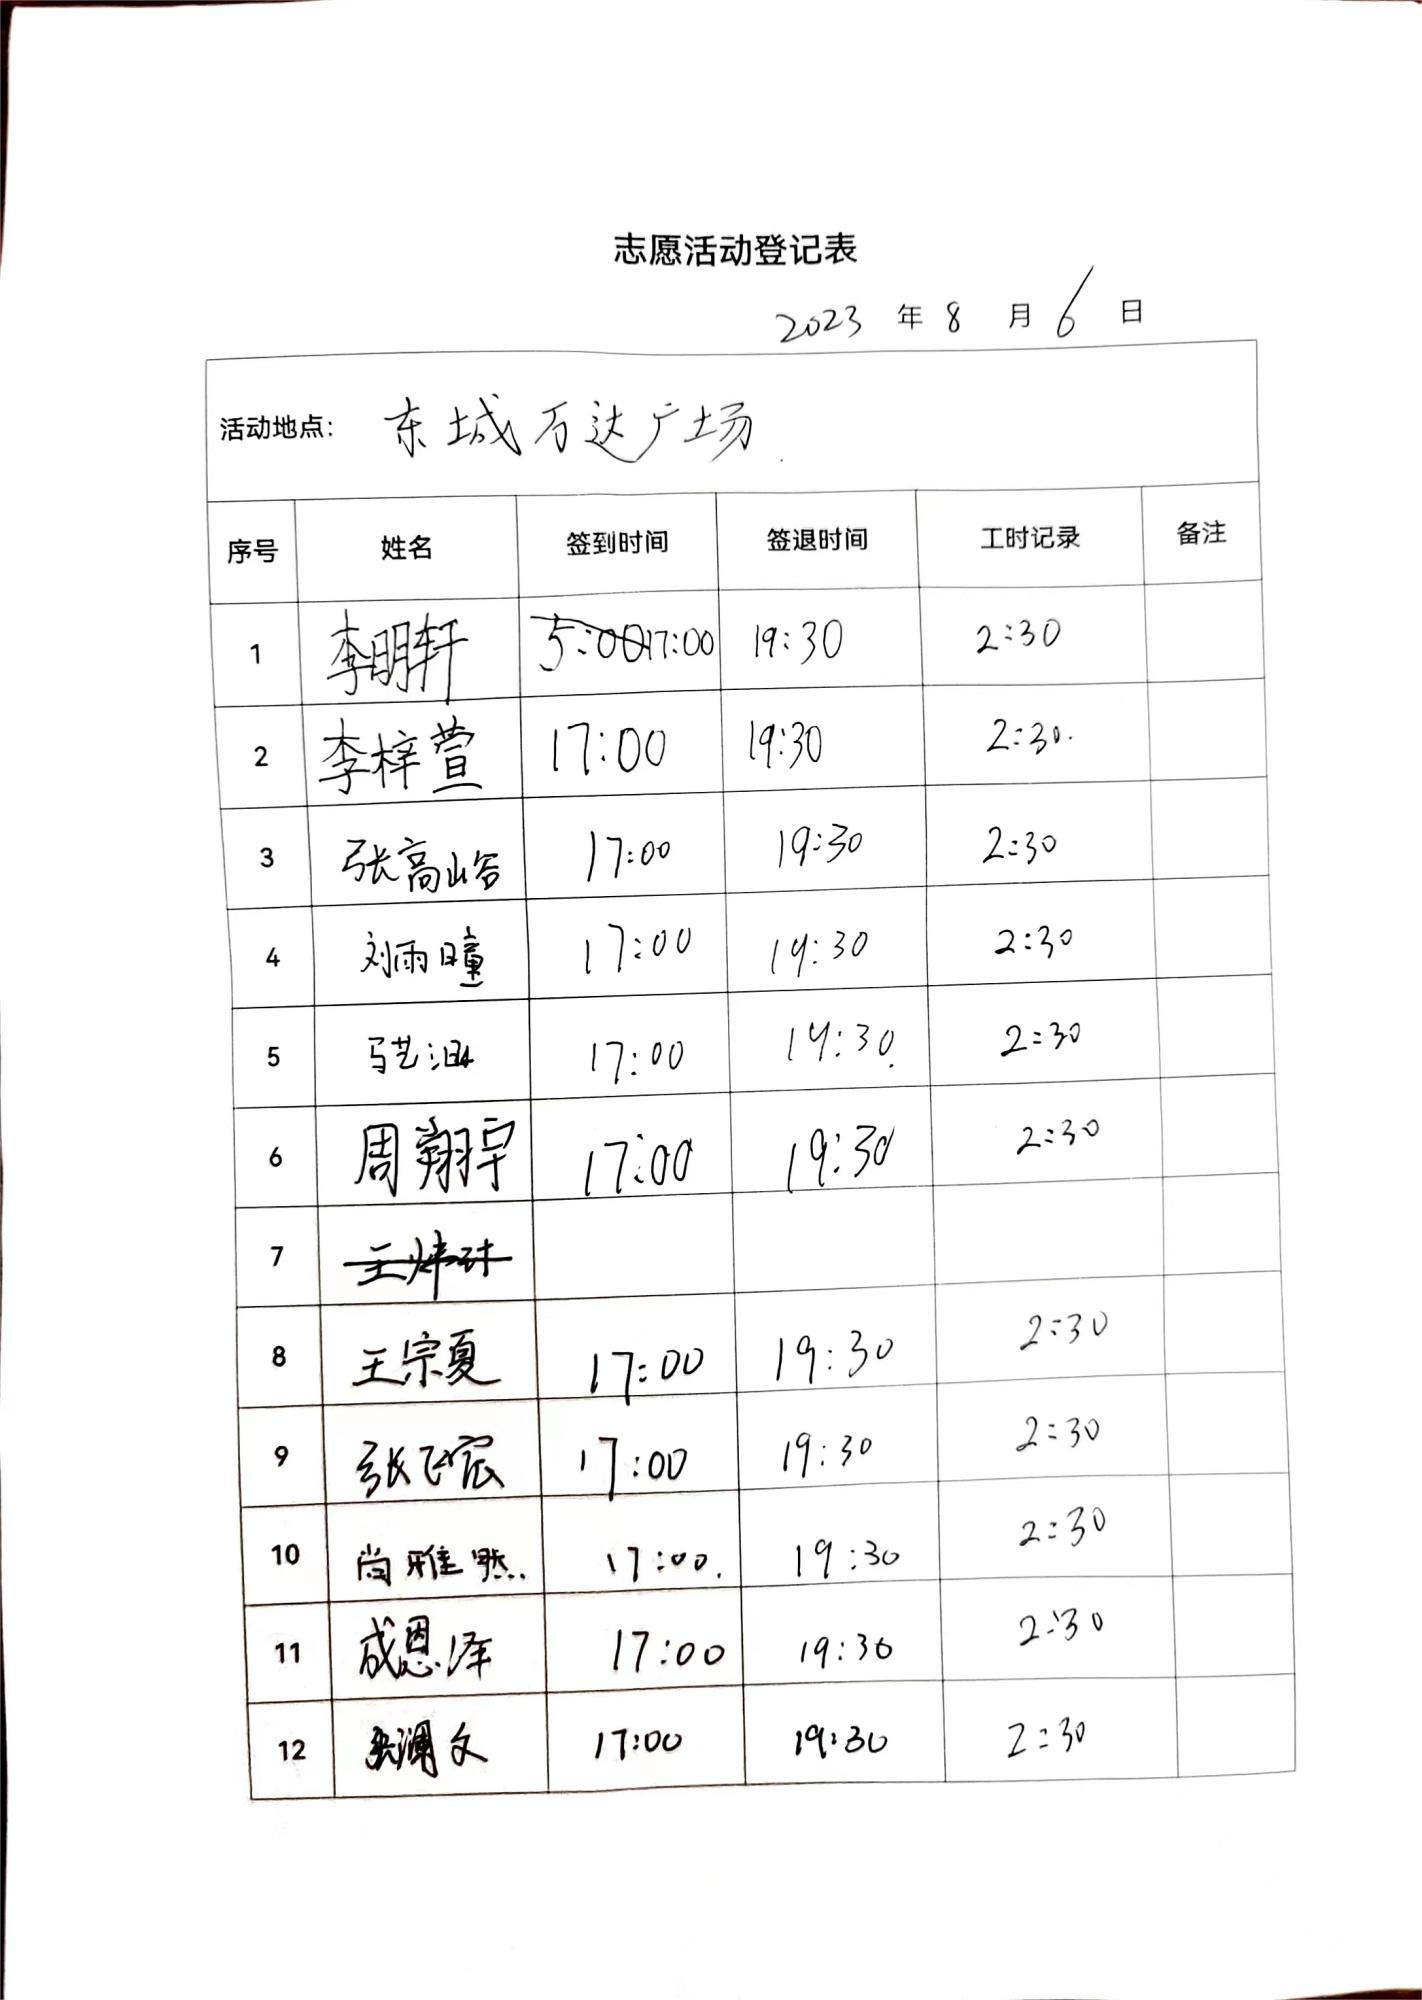 志愿活动登记表
2023 年 8 月 6 日
活动地点: 东城万达广场
序号 姓名 签到时间 签退时间 工时记录 备注
1 李明轩 5:00 17:00 19:30 2:30
2 李梓萱 17:00 19:30 2:30
3 张高峪 17:00 19:30 2:30
4 刘雨瞳 17:00 19:30 2:30
5 马艺 17:00 19:30 2:30
6 周翔宇 17:00 19:30 2:30
7
8 王宗夏 17:00 19:30 2:30
9 张飞宸 17:00 19:30 2:30
10 尚雅然 17:00 19:30 2:30
11 成恩泽 17:00 19:30 2:30
12 澜文 17:00 19:30 2:30